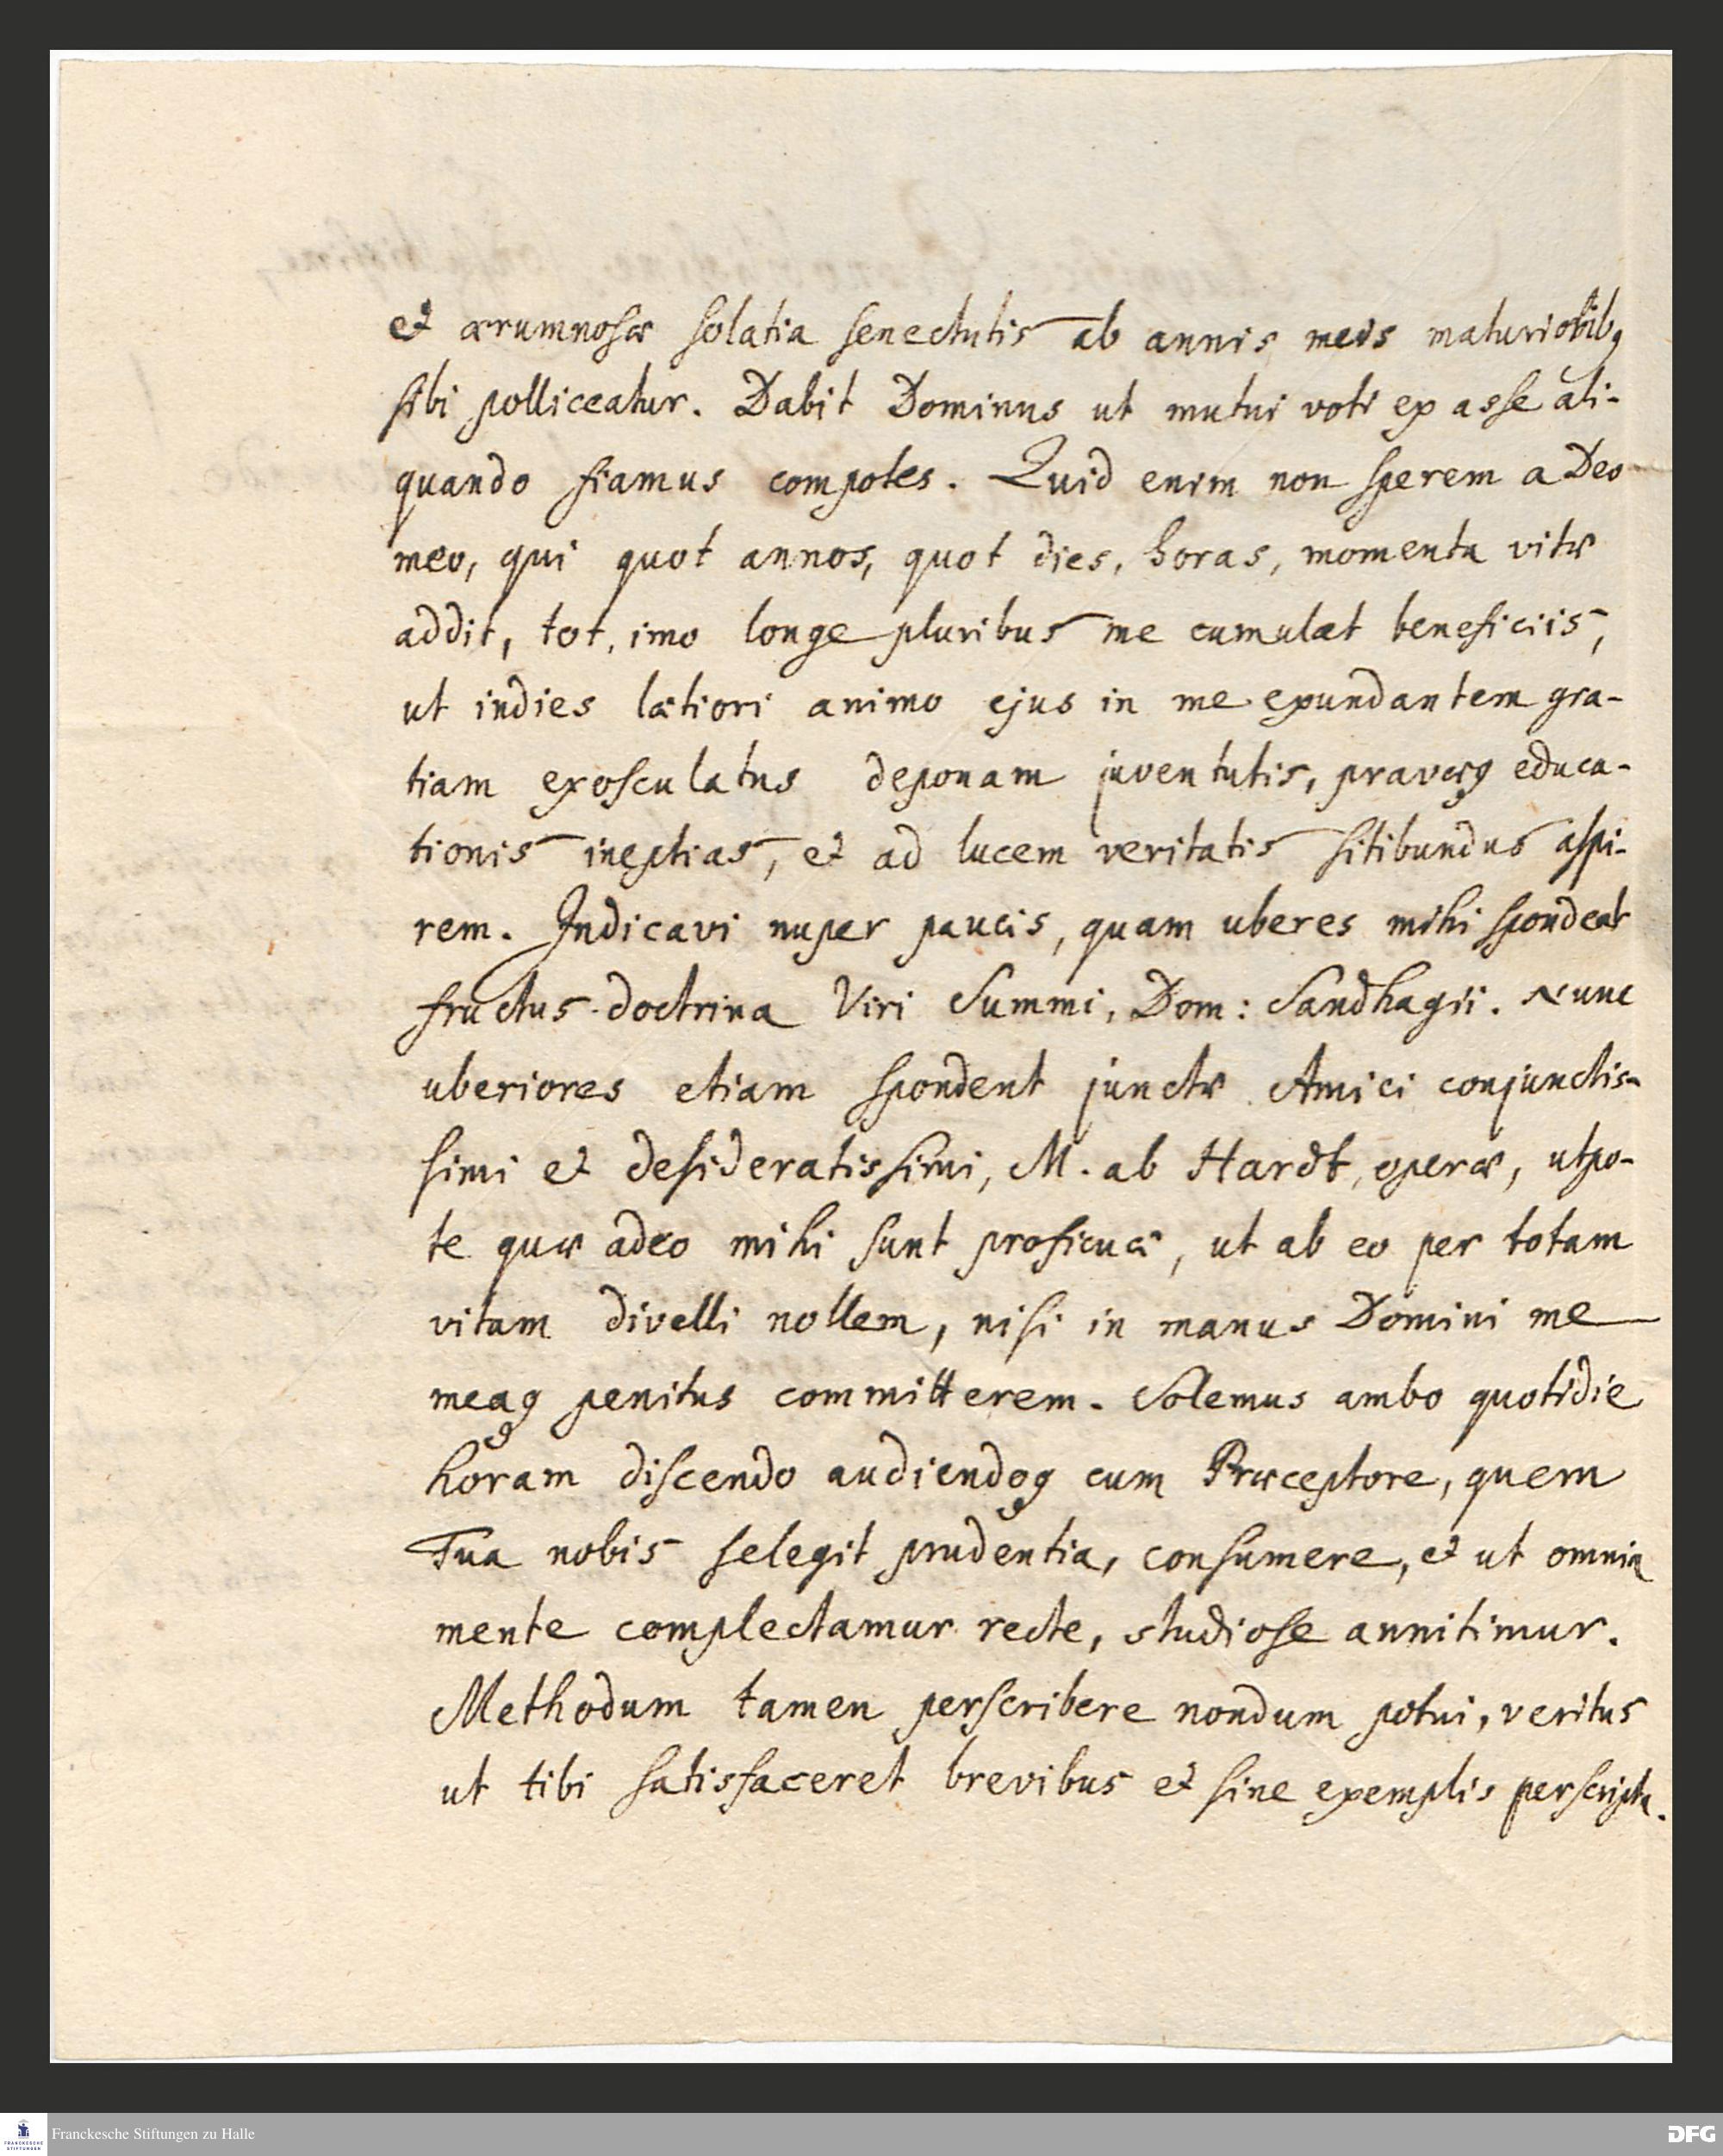 et ærumnosæ solatia senectutis ab annis meis maturioribq
sibi polliceatur. Dabit Dominus ut mutui voti ex asse ali-
quando fiamus compotes. Quid enim non sperem a Deo
meo, qui quot annos, quot dies, horas, momenta vitæ
addit, tot, imo longe pluribus me cumulat beneficiis,
ut indies lætiori animo ejus in me exundantem gra-
tiam exosculatus deponam juventutis, pravæq educa-
tionis ineptias, et ad lucem veritatis sitibundus aspi-
rem. Indicavi nuper paucis, quam uberes mihi spondeat
fructus doctrina Viri Summi, Dom: Sandhagii. Nunc
uberiores etiam spondent junctæ Amici conjunctis-
simi et desideratissimi, M. ab Hardt, operæ, utpo-
te quæ adeo mihi sunt proficuæ, ut ab eo per totam
vitam divelli nollem, nisi in manus Domini me
meaq penitus committerem. Solemus ambo quotidie
horam discendo audiendoq cum Præceptore, quem
Tua nobis selegit prudentia, consumere, et ut omnia
mente complectamur recte, studiose annitimur.
Methodum tamen perscribere nondum potui, veritus
ut tibi satisfaceret brevibus et sine exemplis perscripta.
Franckesche Stiftungen zu Halle
FRANCKESCHE
STIFTUNGEN
DFG